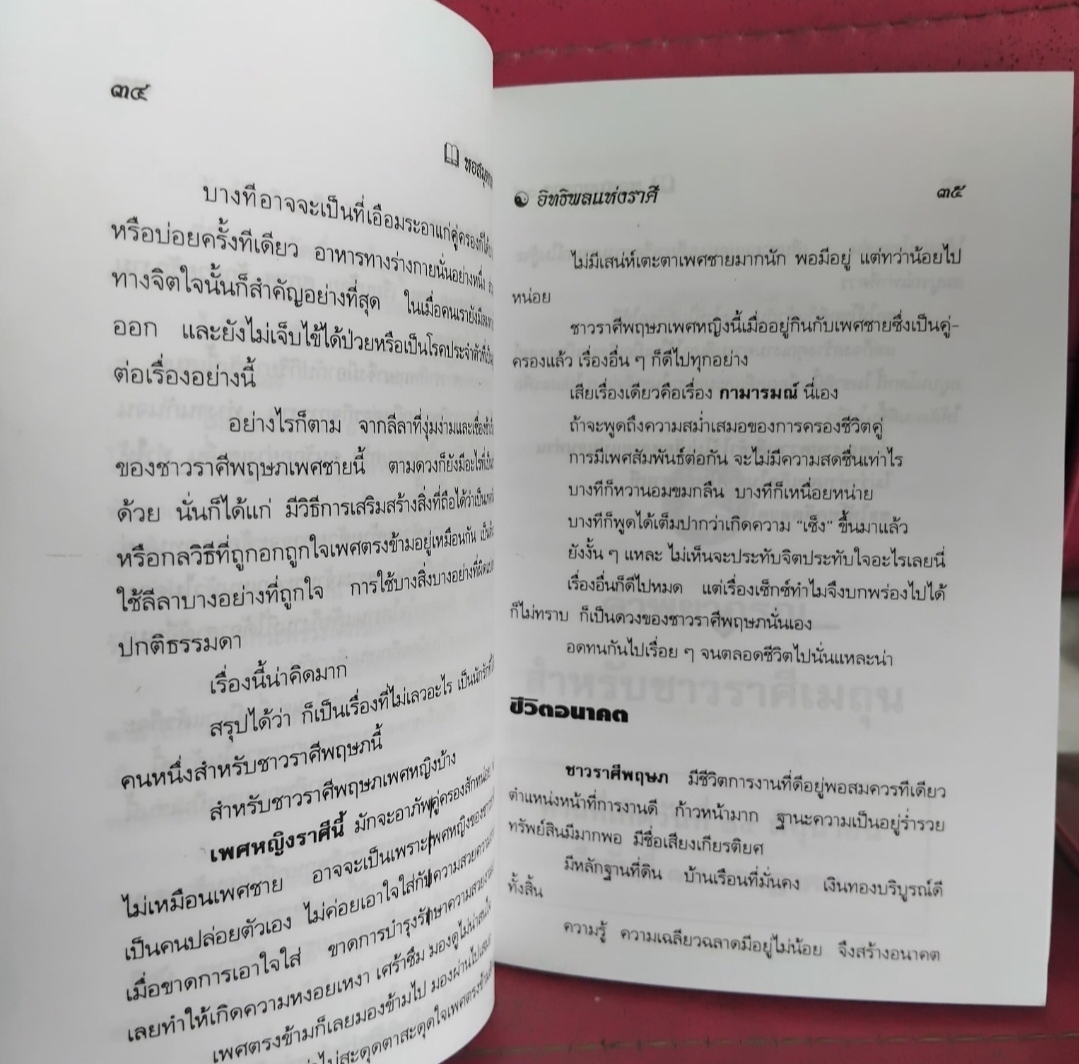 ๓๔
บางทีอาจจะเป็นที่เอือมระอาแก่คู่ครองก็ได้
หรือบ่อยครั้งทีเดียว อาหารทางร่างกายนั่นอย่างหนึ่ง
ทางจิตใจนั้นก็สำคัญอย่างที่สุด ในเมื่อคนเรายังมี
ออก และยังไม่เจ็บไข้ได้ป่วยหรือเป็นโรคประจำตัว
ต่อเรื่องอย่างนี้
อย่างไรก็ตาม จากลีลาที่งุ่มง่าม
ของชาวราศีพฤษภเพศชายนี้ ตามดวงก็ยังมีอะไร
ด้วย นั่นก็ได้แก่ มีวิธีการเสริมสร้างสิ่งที่ถือได้ว่าเป็น
หรือกลวิธีที่ถูกอกถูกใจเพศตรงข้ามอยู่เหมือนกัน
ใช้ลีลาบางอย่างที่ถูกใจ การใช้บางสิ่งบางอย่างที่
ปกติธรรมดา
เรื่องนี้น่าคิดมาก
สรุปได้ว่า ก็เป็นเรื่องที่ไม่เลวอะไร เป็นนักรัก
คนหนึ่งสำหรับชาวราศีพฤษภนี้
สำหรับชาวราศีพฤษภเพศหญิงบ้าง
เพศหญิงราศีนี้ มักจะอาภัพคู่ครองสักหน่อย
ไม่เหมือนเพศชาย อาจจะเป็นเพราะเพศหญิงของ
เป็นคนปล่อยตัวเอง ไม่ค่อยเอาใจใส่กับความสวย
เมื่อขาดการเอาใจใส่ ขาดการบำรุงรักษาความสวย
เลยทำให้เกิดความหงอยเหงา เศร้าซึม มองดูไม่น่าสนใจ
เพศตรงข้ามก็เลยมองข้ามไป มองผ่านไป
ไม่สะดุดตาสะดุดใจเพศตรงข้าม
อิทธิพลแห่งราศี ๓๕
ไม่มีเสน่ห์เตะตาเพศชายมากนัก พอมีอยู่ แต่ทว่าน้อยไป
หน่อย
ชาวราศีพฤษภเพศหญิงนี้เมื่ออยู่กินกับเพศชายซึ่งเป็นคู่-
ครองแล้ว เรื่องอื่น ๆ ก็ดีไปทุกอย่าง
เสียเรื่องเดียวคือเรื่อง กามารมณ์ นี่เอง
ถ้าจะพูดถึงความสม่ำเสมอของการครองชีวิตคู่
การมีเพศสัมพันธ์ต่อกัน จะไม่มีความสดชื่นเท่าไร
บางทีก็หวานอมขมกลืน บางทีก็เหนื่อยหน่าย
บางทีก็พูดได้เต็มปากว่าเกิดความ “เซ็ง” ขึ้นมาแล้ว
ยังงั้น ๆ แหละ ไม่เห็นจะประทับจิตประทับใจอะไรเลยนี่
เรื่องอื่นก็ดีไปหมด แต่เรื่องเซ็กซ์ทำไมจึงบกพร่องไปได้
ก็ไม่ทราบ ก็เป็นดวงของชาวราศีพฤษภนั่นเอง
อดทนกันไปเรื่อย ๆ จนตลอดชีวิตไปนั่นแหละน่า
ชีวิตอนาคต
ชาวราศีพฤษภ มีชีวิตการงานที่ดีอยู่พอสมควรทีเดียว
ตำแหน่งหน้าที่การงานดี ก้าวหน้ามาก ฐานะความเป็นอยู่ร่ำรวย
ทรัพย์สินมีมากพอ มีชื่อเสียงเกียรติยศ
มีหลักฐานที่ดิน บ้านเรือนที่มั่นคง เงินทองบริบูรณ์ดี
ทั้งสิ้น
ความรู้ ความเฉลียวฉลาดมีอยู่ไม่น้อย จึงสร้างอนาคต